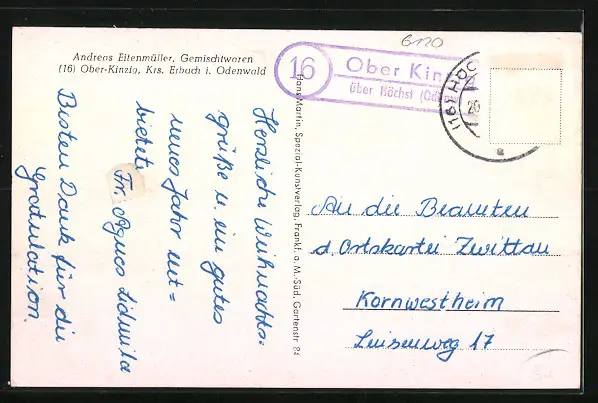 6120
Andreas Eitenmüller, Gemischtwaren
(16) Ober-Kinzig, Krs. Erbach i. Odenwald
16
Ober Kinzig
über Höchst (Odenw
(16) HÖC
20
a
Herzliche Weihnachts-
grüße u. ein gutes
neues Jahr ent=
bietet
Fr. Agnes Lidmila
Besten Dank für die
Gratulation.
Hans Martin, Spezial-Kunstverlag, Frankf. a. M.-Süd, Gartenstr. 84
An die Beamten
d. Ortskartei Zwittau
Kornwestheim
Luisenweg 17